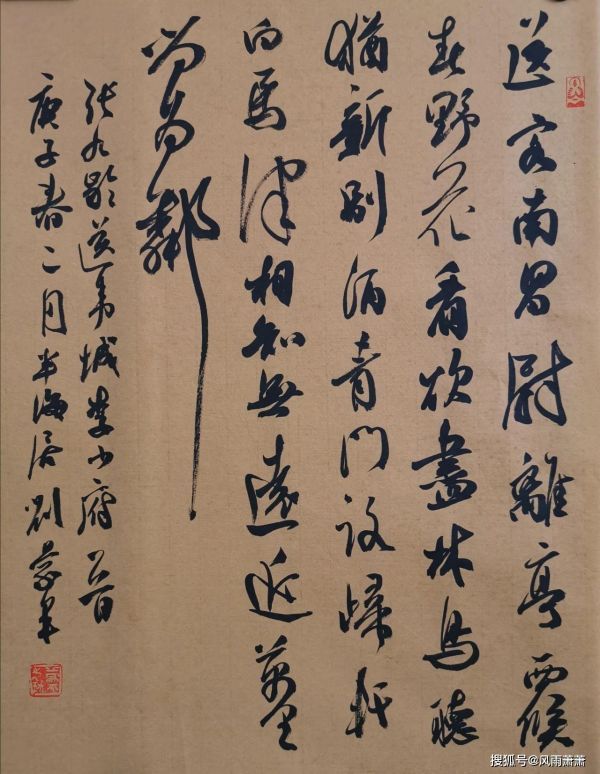 送客南昌尉離亭西候
春野花看欲盡林鳥聽
猶新別酒青門路歸軒
白馬津相知無遠近萬里
尚為鄰
張九齡送韋城李少府一首
庚子春二月半海居劉
搜狐号@风雨萧萧